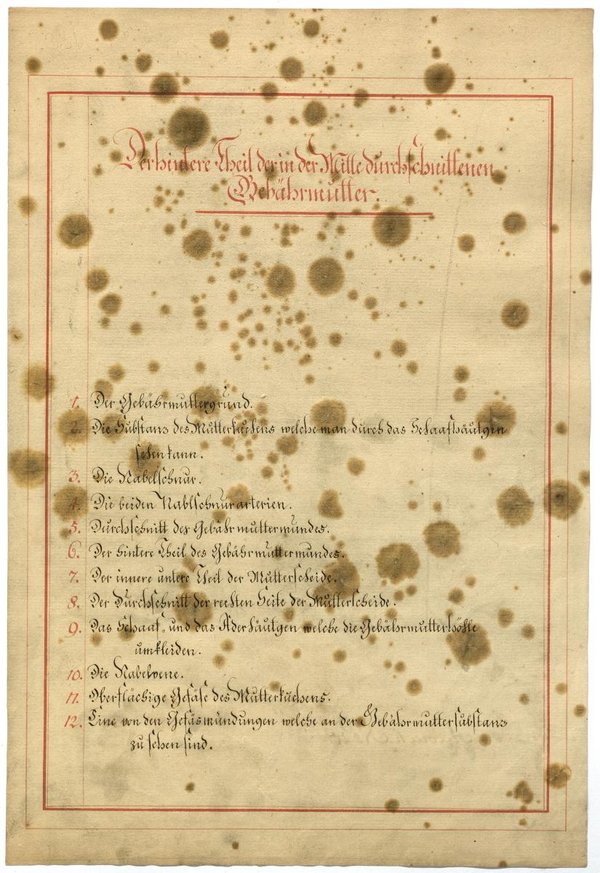 Der hintere Theil der in der Mitte durchschnittenen
Gebährmutter.
1. Der Gebährmuttergrund.
2. Die Substanz des Mutterkuchens welche man durch das Schaafhäutgen
sehen kann.
3. Die Nabelschnur.
4. Die beiden Nablschnurarterien.
5. Durchschnitt des Gebährmuttermundes.
6. Der hintere Theil des Gebährmuttermundes.
7. Der innere untere Theil der Mutterscheide.
8. Der Durchschnitt der rechten Seite der Mutterscheide.
9. Das Schaaf- und das Aderhäutgen welche die Gebährmutterhöhle
umkleiden.
10. Die Nabelvene.
11. Oberflächige Gefäse des Mutterkuchens.
12. Eine von den Gefäsmündungen welche an der Gebährmuttersubstanz
zu sehen sind.